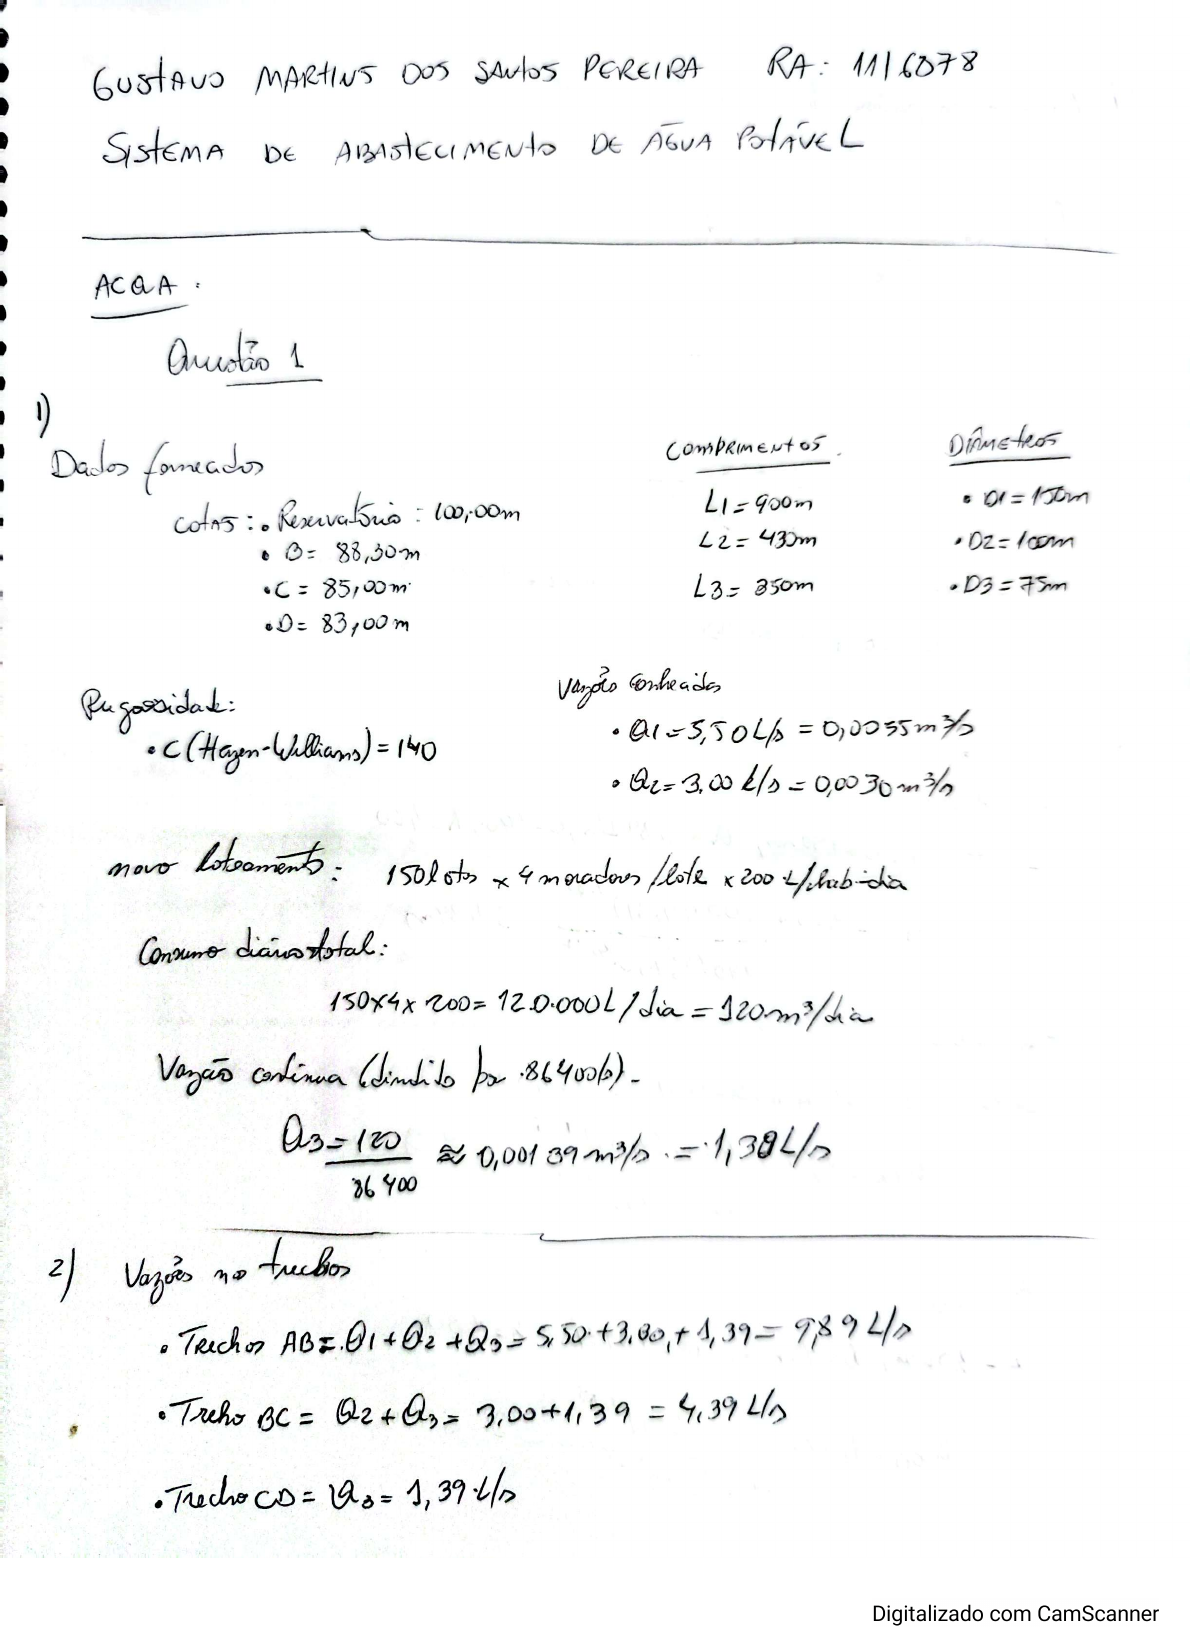 GUSTAVO MARTINS DOS SANTOS PEREIRA RA: 1116078
SISTEMA DE ABASTECIMENTO DE ÁGUA POTÁVEL
ACQA:
Questão 1
1)
Dados fornecidos
COMPRIMENTOS.
DIÂMETROS
cotas: • Reservatório: 100,00m
L1 = 900m
• D1 = 150m
• B = 88,30m
L2 = 430m
• D2 = 100m
• C = 85,00m
L3 = 350m
• D3 = 75m
• D = 83,00m
Rugosidade:
Vazões conhecidas
• C (Hazen-Willians) = 140
• Q1 = 5,50 L/s = 0,0055 m³/s
• Q2 = 3,00 L/s = 0,0030 m³/s
novo loteamento: 150 lotes x 4 moradores/lote x 200 L/hab-dia
Consumo diário total:
150x4x200 = 120.000 L/dia = 120 m³/dia
Vazão contínua (dividido por 86400s).
Q3 = 120/86400 ≈ 0,00139 m³/s = 1,38 L/s
2) Vazões no trechos
• Trechos AB = Q1 + Q2 + Q3 = 5,50 + 3,00 + 1,39 = 9,89 L/s
• Trecho BC = Q2 + Q3 = 3,00 + 1,39 = 4,39 L/s
• Trecho CD = Q3 = 1,39 L/s
Digitalizado com CamScanner